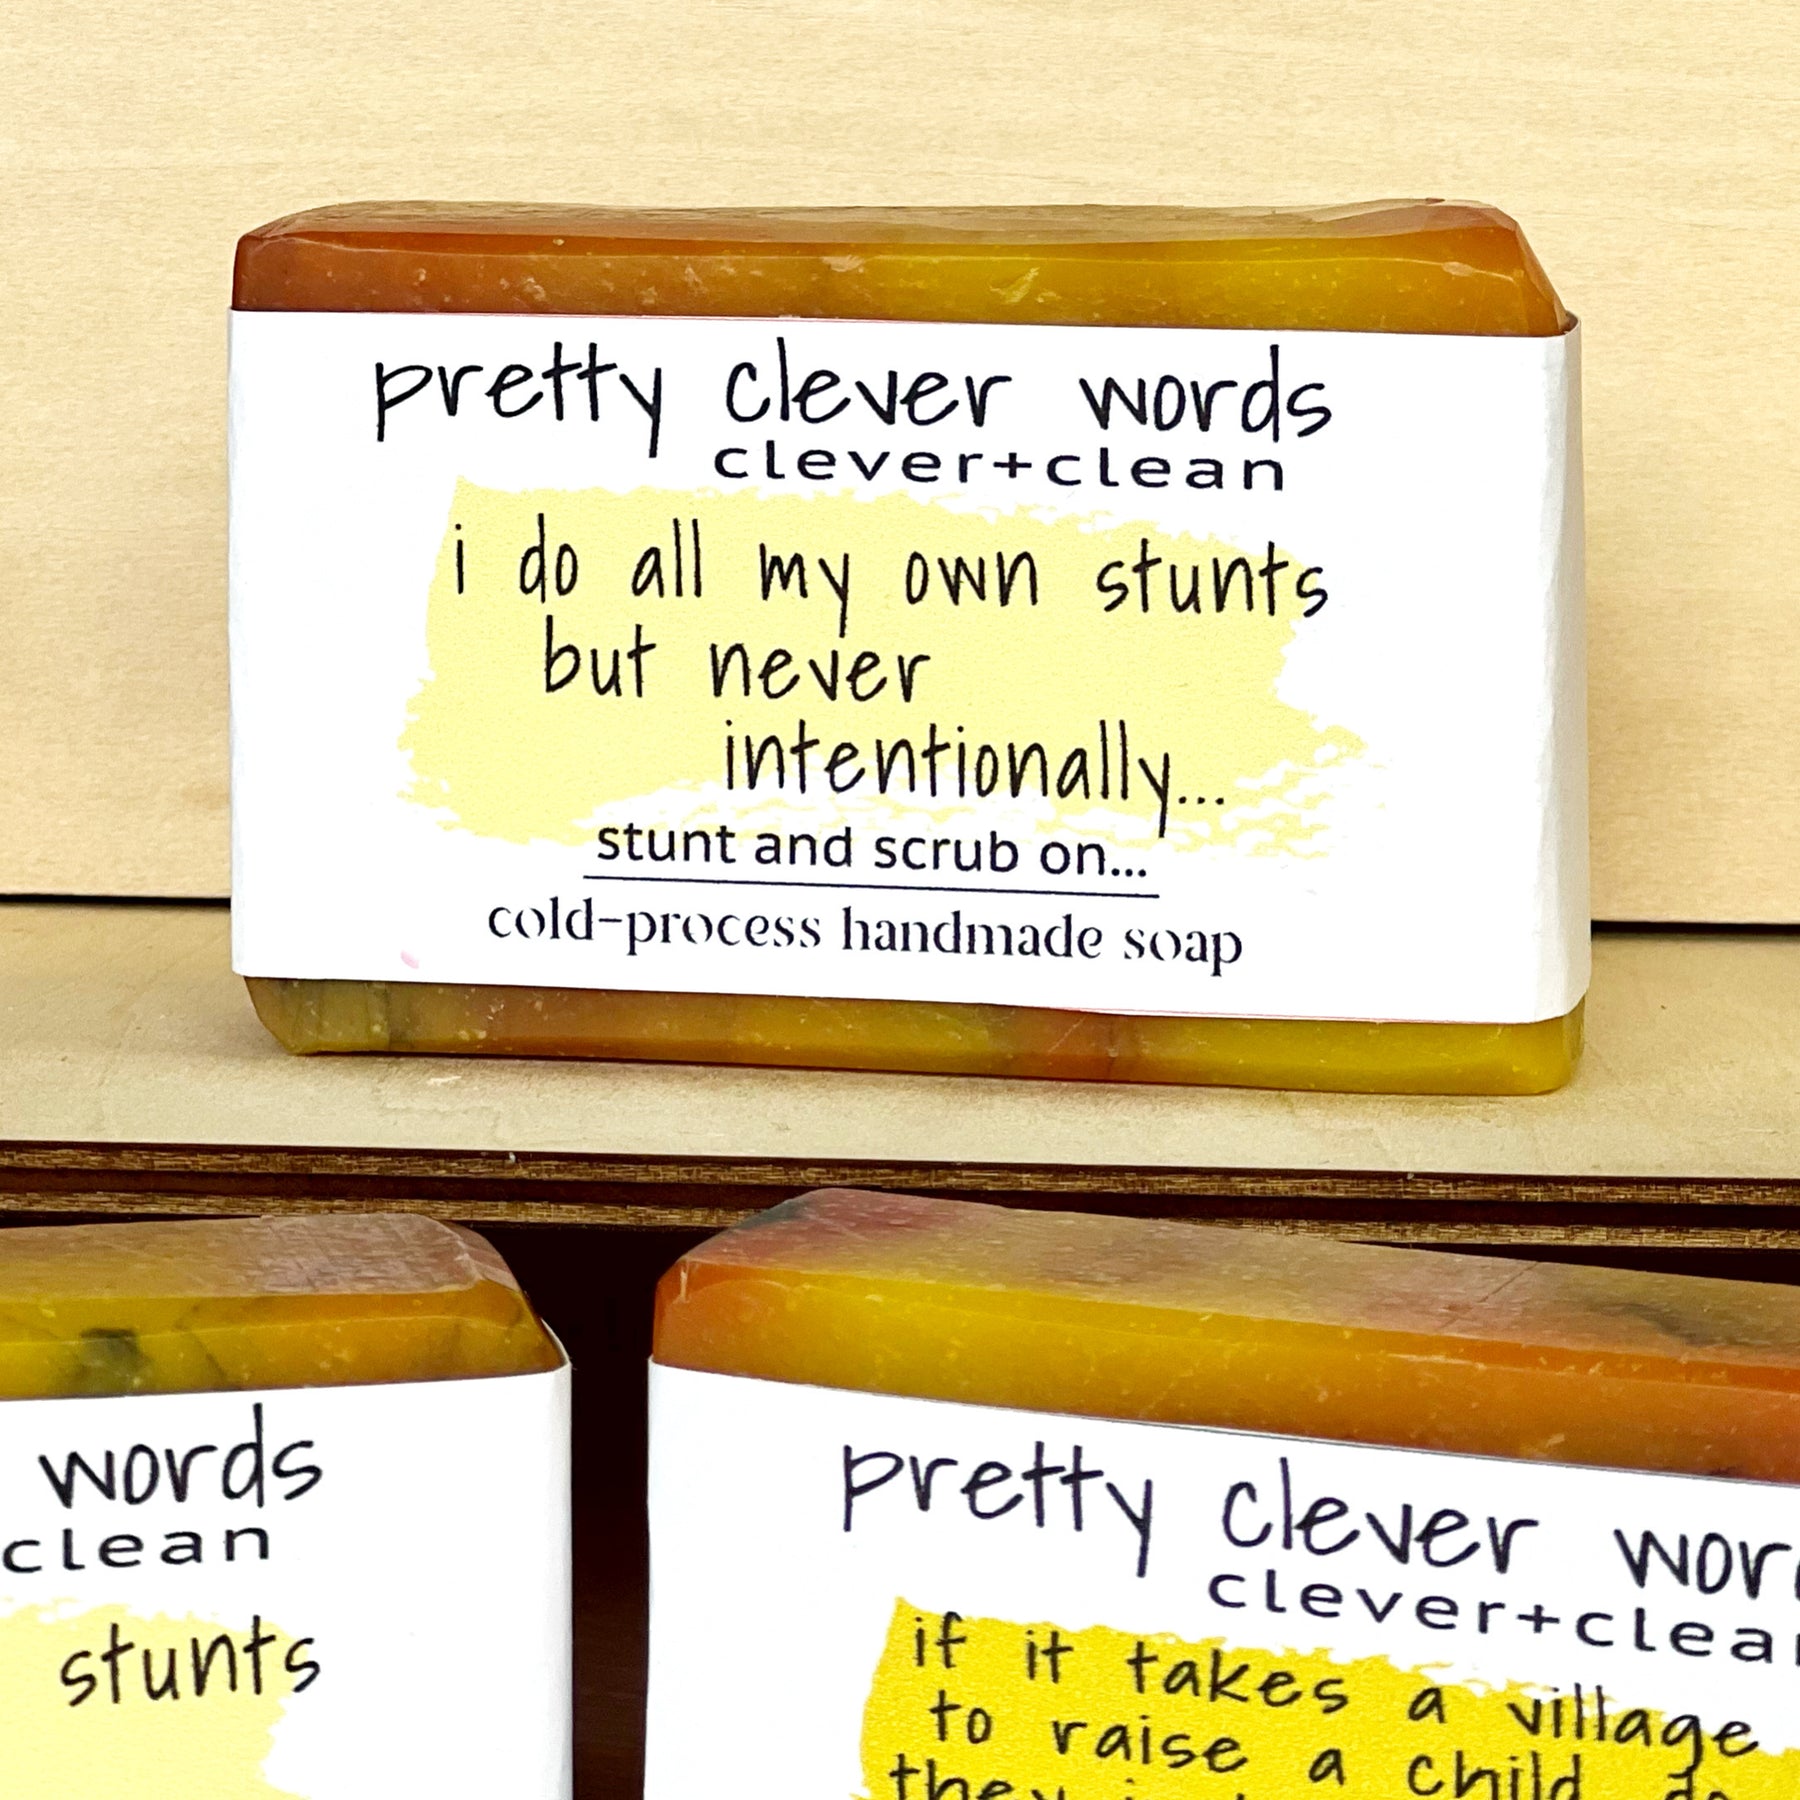 pretty clever words
clever+clean
i do all my own stunts
but never
intentionally...
stunt and scrub on...
cold-process handmade soap
words
clean
stunts
pretty clever
clever+clean
if it takes a village
to raise a child